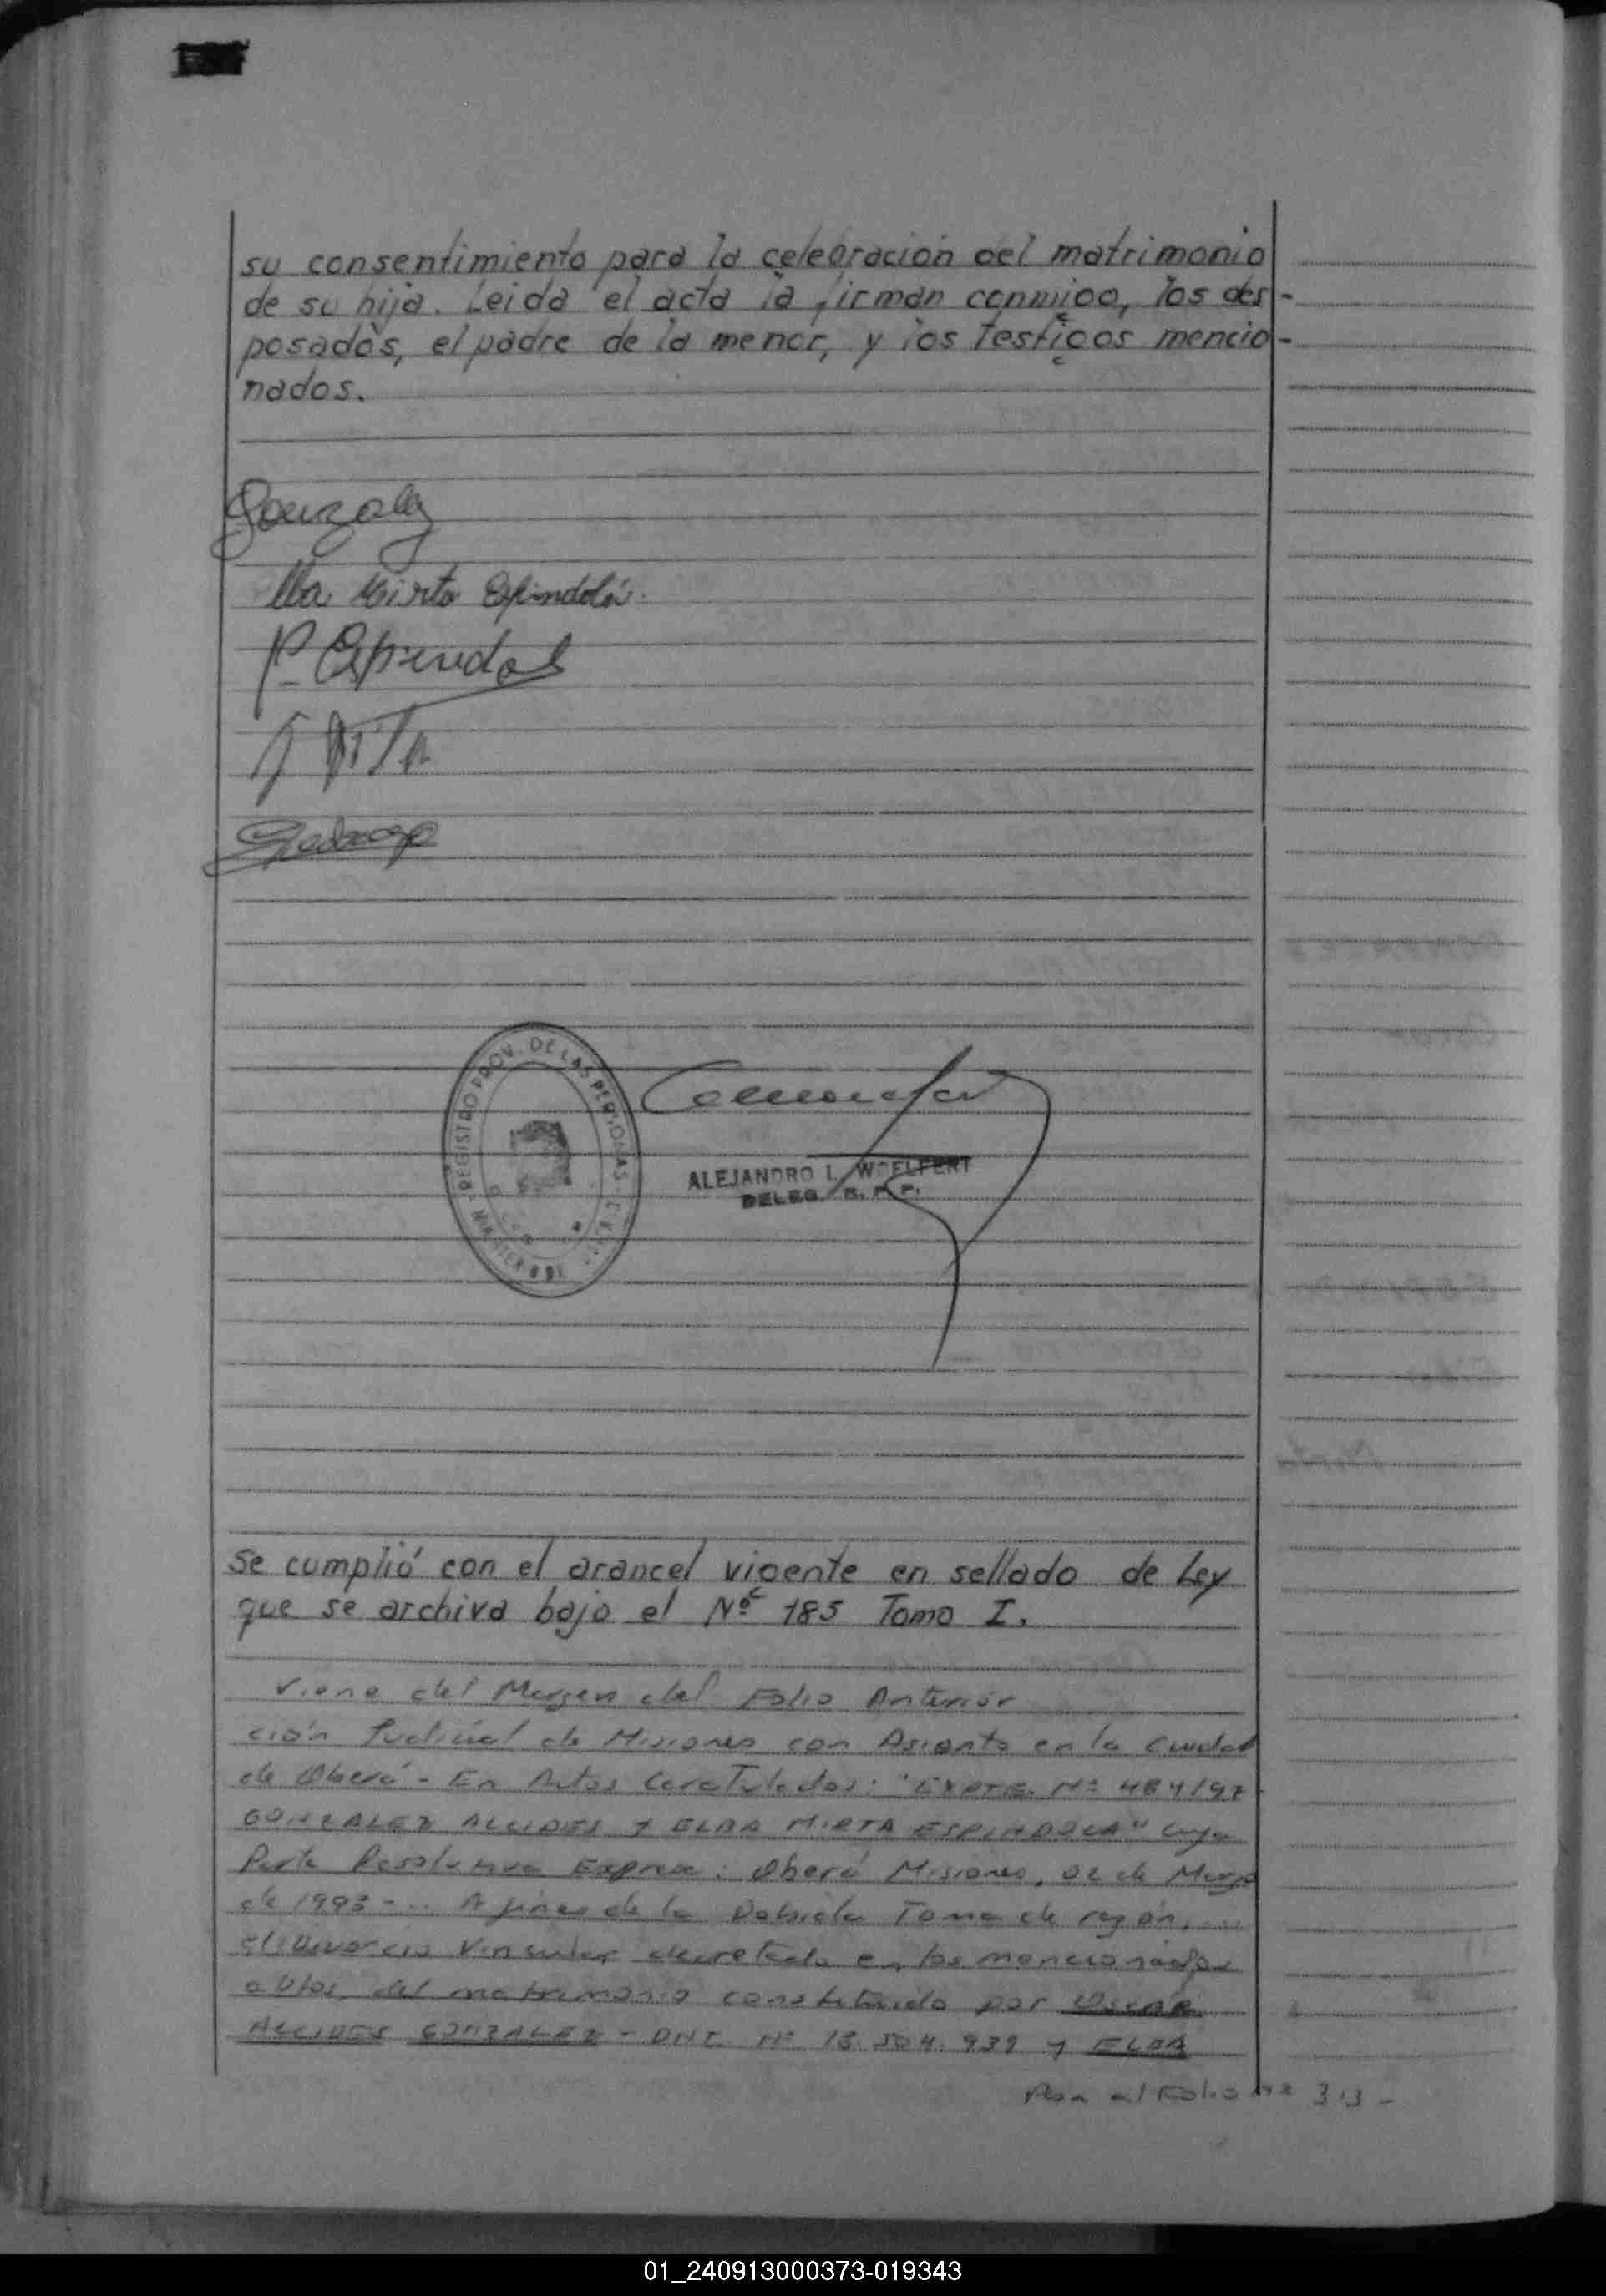 su consentimiento para la celebración del matrimonio
de su hija. Leida el acta la firman conmigo, los des-
posados, el padre de la menor, y los testigos mencio-
nados.
Gonzalez
Elba Mirta Espindola
P. Espindola
Pedrozo
REGISTRO PROV. DE LAS PERSONAS
ALEJANDRO L. WOELFERT
DELEG. R. P. P.
Se cumplió con el arancel vigente en sellado de Ley
que se archiva bajo el Nº 185 Tomo I.
Viene del Margen del Folio Anterior
ción Judicial de Misiones con Asiento en la Ciudad
de Oberá - En Autos Caratulados: "EXPTE. Nº 484/92
GONZALEZ ALCIDES Y ELBA MIRTA ESPINDOLA" cuya
Parte Resolutiva Expresa: Oberá Misiones, 02 de Marzo
de 1993 - ... A fines de la Debida Toma de razón, ...
el Divorcio Vincular decretado en los mencionados
autos, del matrimonio constituido por OSCAR
ALCIDES GONZALEZ - DNI. Nº 13.504.939 y ELBA
Pasa al Folio Nº 313 -
01_240913000373-019343